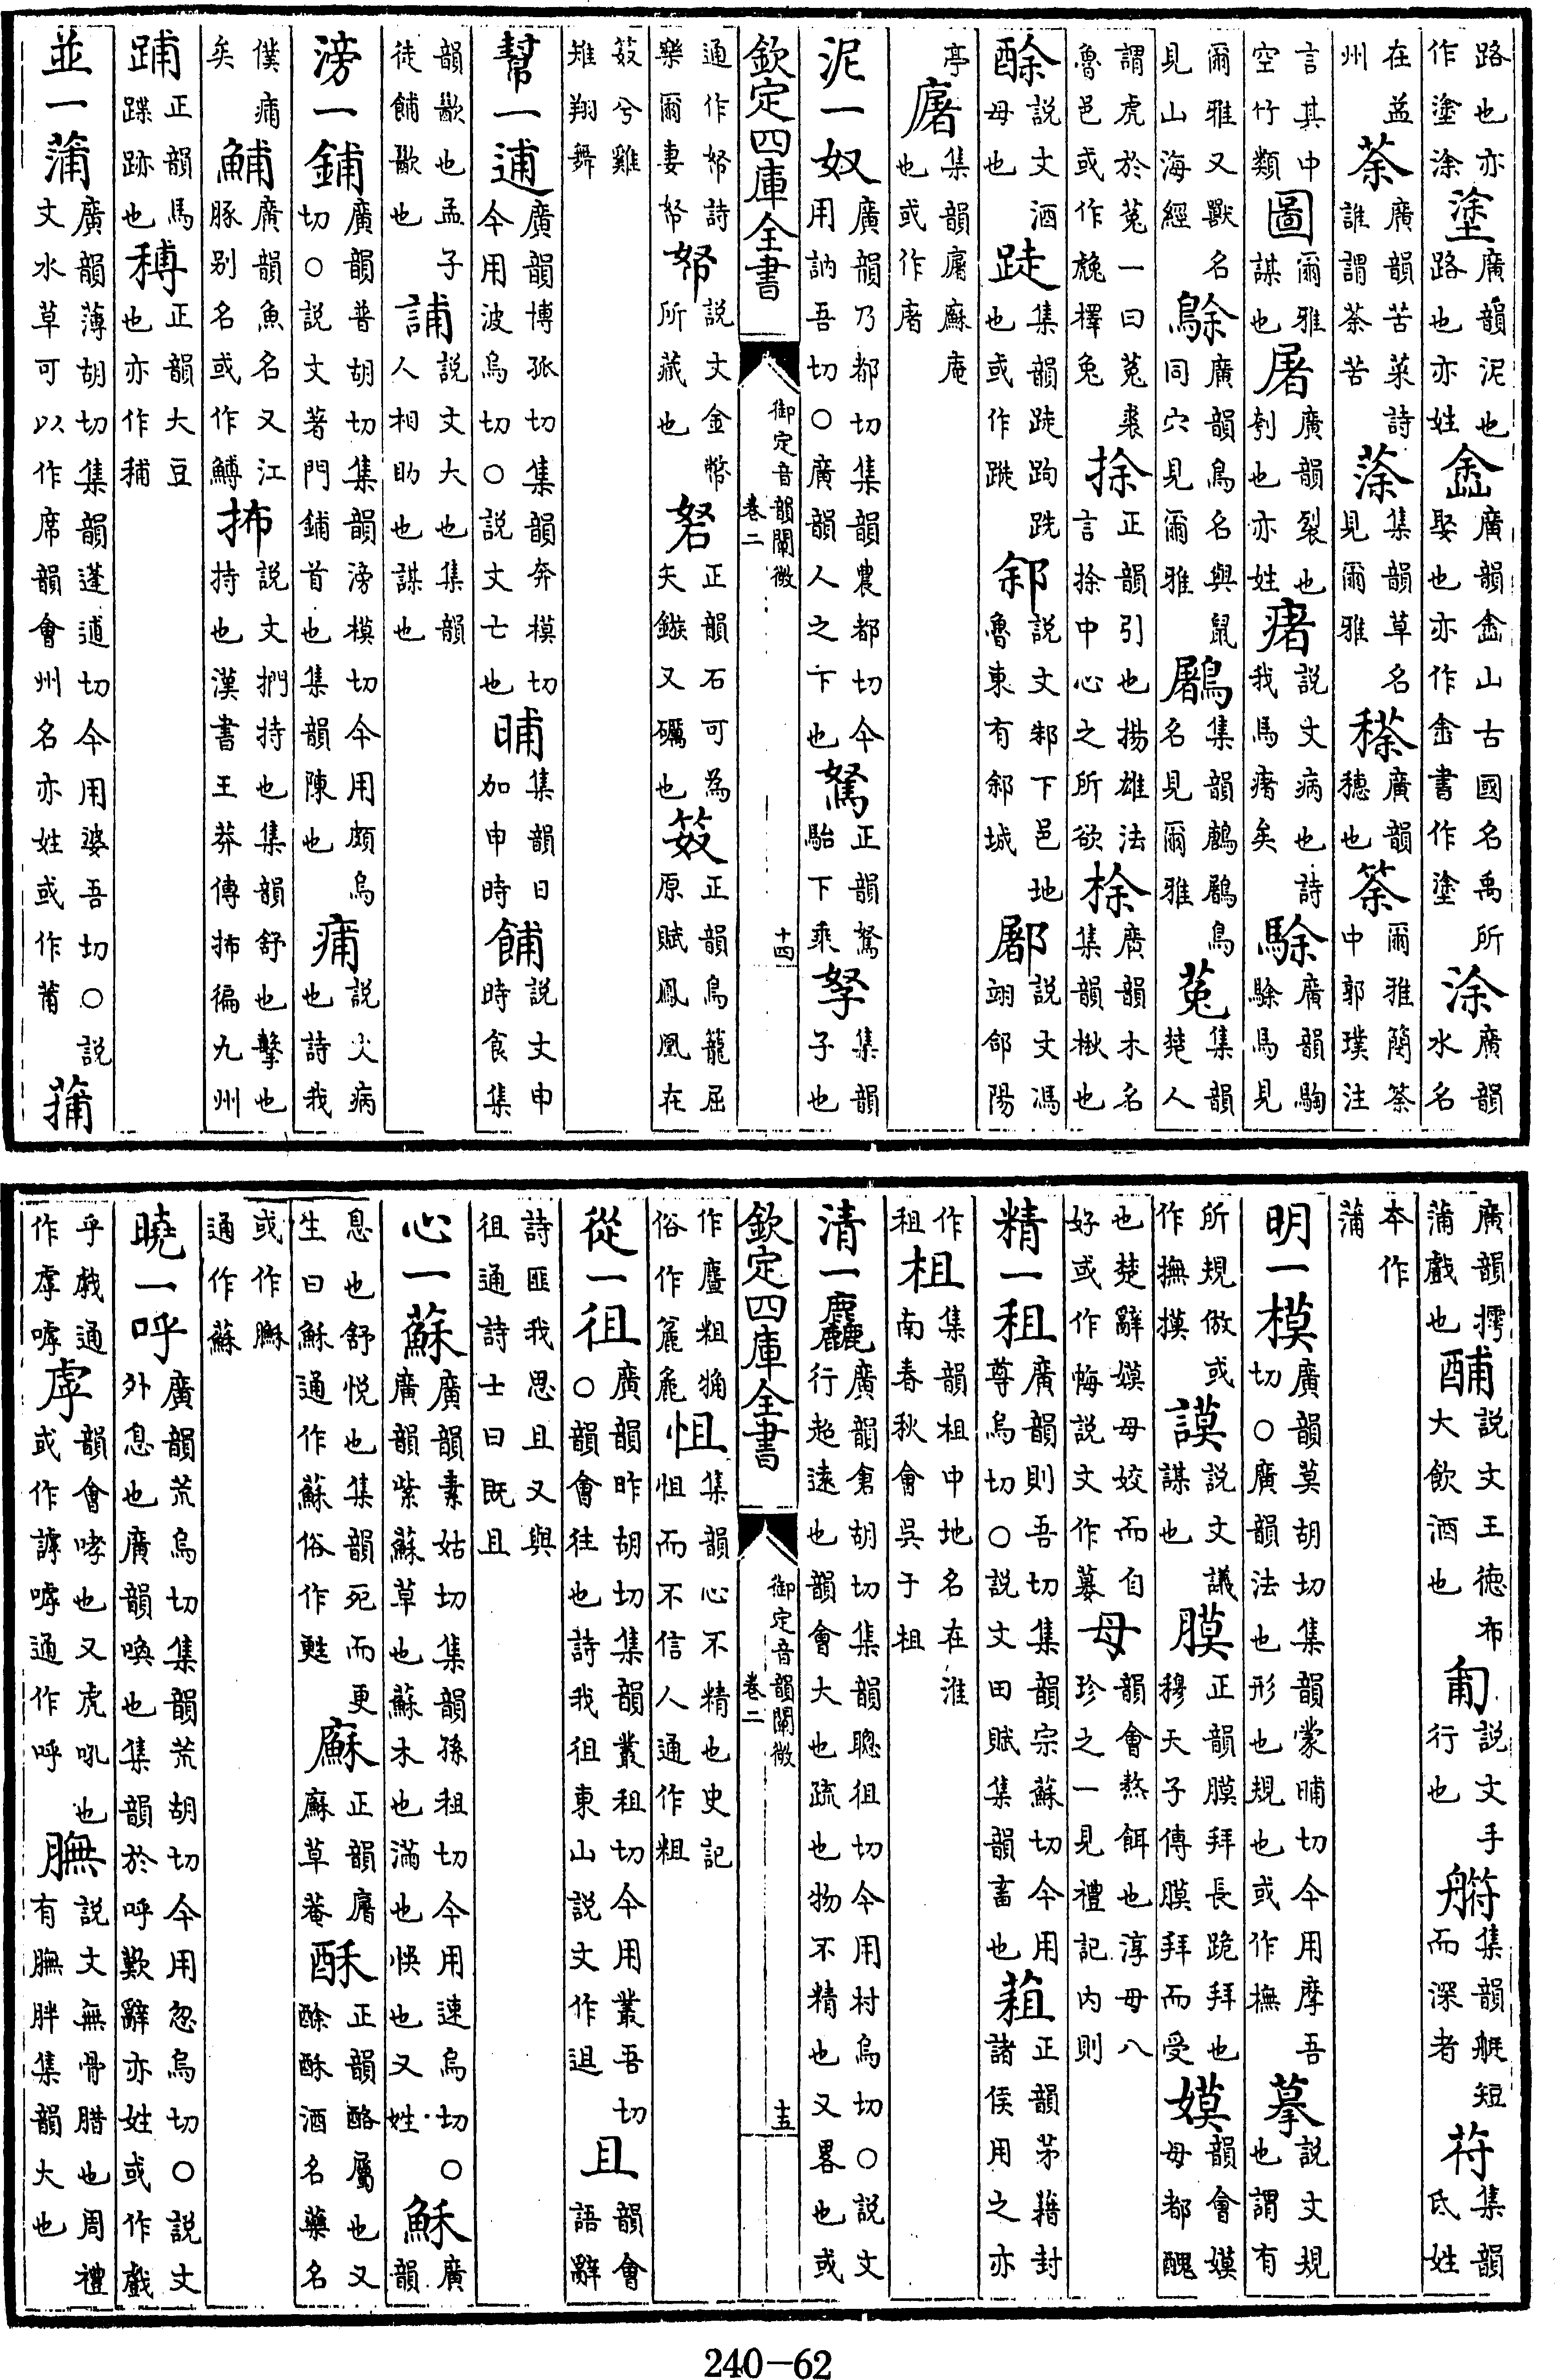 路也亦作塗涂塗廣韻泥也路也亦姓嵞廣韻嵞山古國名禹所娶也亦作嵞書作塗涂廣韻水名
在益州荼廣韻苦菜詩誰謂荼苦蒤集韻草名見爾雅䅷廣韻穗也筡爾雅簡筡中郭璞注
言其中空竹類圖爾雅謀也屠廣韻裂也刳也亦姓瘏說文病也詩我馬瘏矣駼廣韻騊駼馬見
爾雅又獸名見山海經鵌廣韻鳥名與鼠同穴見爾雅鷵集韻鷓鷵鳥名見爾雅菟集韻楚人
謂虎於菟一曰菟裘魯邑或作檡兔捈正韻引也揚雄法言捈中心之所欲梌廣韻木名集韻楸也
酴說文酒母也跿集韻跿跔跣也或作䣄說文邾下邑地魯東有䣄城䣝說文馮翊郃陽
亭廜集韻廜㢝庵也或作㡯
泥一奴廣韻乃都切集韻農都切今用訥吾切○廣韻人之下也駑正韻駑駘下乘孥集韻子也
欽定四庫全書 御定音韻闡微 卷二 十四
通作帑詩樂爾妻帑帑說文金幣所藏也砮正韻石可為矢鏃又礪也笯正韻鳥籠屈原賦鳳凰在
笯兮雞雉翔舞
幫一逋廣韻博孤切集韻奔模切今用波烏切○說文亡也晡集韻日加申時餔說文申時食集
韻歠也孟子徒餔歠也誧說文大也集韻人相助也謀也
滂一鋪廣韻普胡切集韻滂模切今用頗烏切○說文著門鋪首也集韻陳也痡說文病也詩我
僕痡矣鯆廣韻魚名又江豚別名或作鱄抪說文捫持也集韻舒也擊也持也漢書王莽傳抪徧九州
踊正韻馬蹀跡也䪔正韻大豆也亦作䅵
並一蒲廣韻薄胡切集韻蓬逋切今用婆吾切○說文水草可以作席韻會州名亦姓或作莆蒱
廣韻摴蒱戲也酺說文王德布大飲酒也匍說文手行也集韻艇短而深者苻集韻氐姓
本作蒲
明一模廣韻莫胡切集韻蒙晡切今用摩吾切○廣韻法也形也規也或作橅摹說文規也謂有
所規倣或作撫摸謨說文議謀也膜正韻膜拜長跪拜也穆天子傳膜拜而受嫫韻會嫫母都醜
也楚辭嫫母姣而自好或作㜈說文作䒬母韻會熬餌也淳母八珍之一見禮記內則
精一租廣韻則吾切集韻宗蘇切今用尊烏切○說文田賦集韻畜也蒩正韻茅藉封諸侯用之亦
作租柤集韻柤中地名在淮南春秋會吳于柤
清一麤廣韻倉胡切集韻聰徂切今用村烏切○說文行超遠也韻會大也疏也物不精也又畧也或
欽定四庫全書 御定音韻闡微 卷二 十五
作麆粗觕俗作麄麁怚集韻心不精也史記怚而不信人通作粗
從一徂廣韻昨胡切集韻叢租切今用叢吾切○韻會往也詩我徂東山說文作䢐且韻會語辭
詩匪我思且又與徂通詩士曰既且
心一蘇廣韻素姑切集韻孫租切今用速烏切○廣韻紫蘇草也蘇木也滿也悞也又姓穌廣韻
息也舒悅也集韻死而更生曰穌通作蘇俗作甦㢝正韻廜㢝草菴酥正韻酪屬也又酴酥酒名藥名
或作䐹通作蘇
曉一呼廣韻荒烏切集韻荒胡切今用忽烏切○說文外息也廣韻喚也集韻於呼歎辭亦姓或作戲
乎戲通作虖嘑虖韻會哮也又虎吼也或作謼嘑通作呼膴說文無骨腊也周禮有膴胖集韻大也
240-62